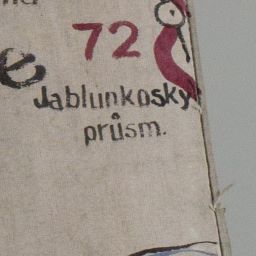 72
Jablunkosky
průsm.